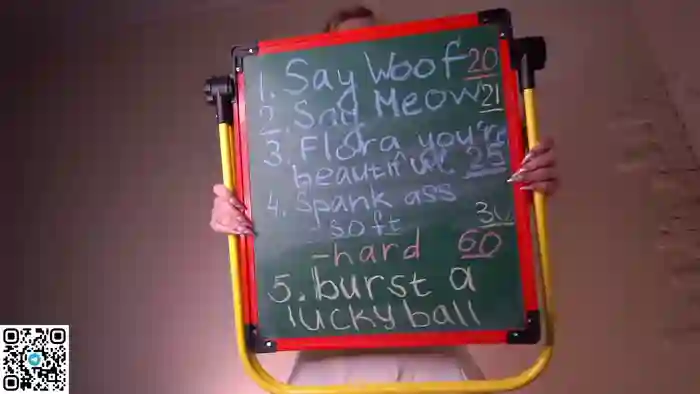 1. Say Woof 20
2. Say Meow 21
3. Flora you're
beautiful 25
4. Spank ass
- soft 30
- hard 60
5. burst a
lucky ball